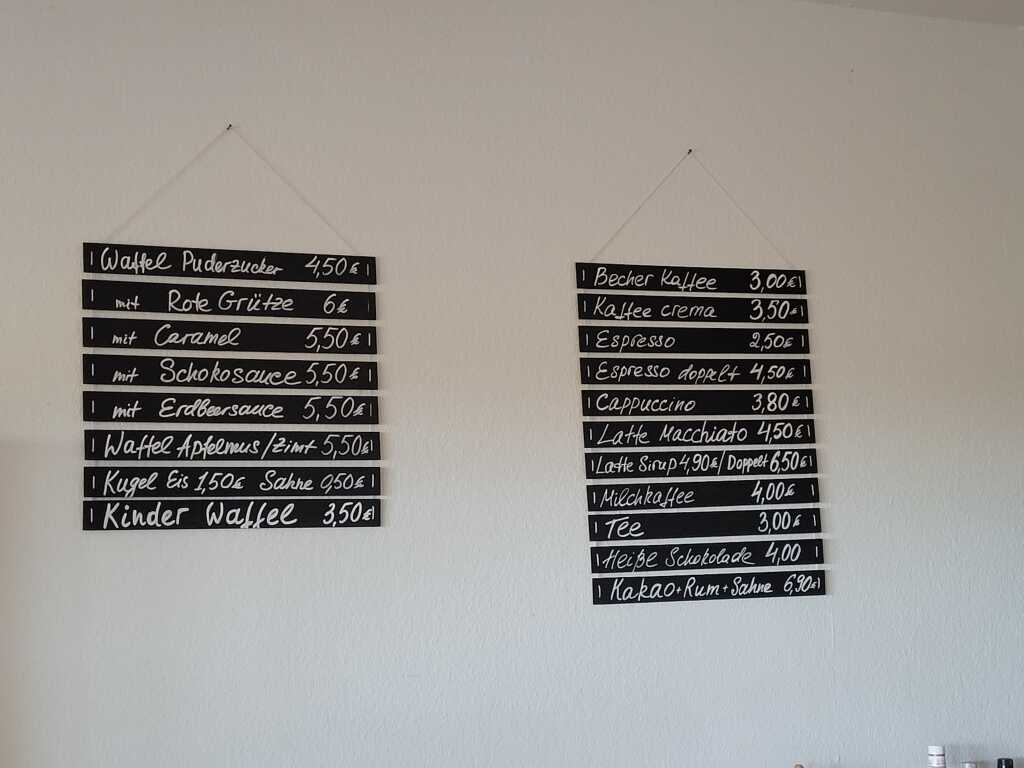 Waffel Puderzucker 4,50€
mit Rote Grütze 6€
mit Caramel 5,50€
mit Schokosauce 5,50€
mit Erdbeersauce 5,50€
Waffel Apfelmus/Zimt 5,50€
Kugel Eis 1,50€ Sahne 0,50€
Kinder Waffel 3,50€
Becher Kaffee 3,00€
Kaffee crema 3,50€
Espresso 2,50€
Espresso doppelt 4,50€
Cappuccino 3,80€
Latte Macchiato 4,50€
Latte Sirup 4,90€/Doppelt 6,50€
Milchkaffee 4,00€
Tee 3,00€
Heiße Schokolade 4,00
Kakao+Rum+Sahne 6,90€